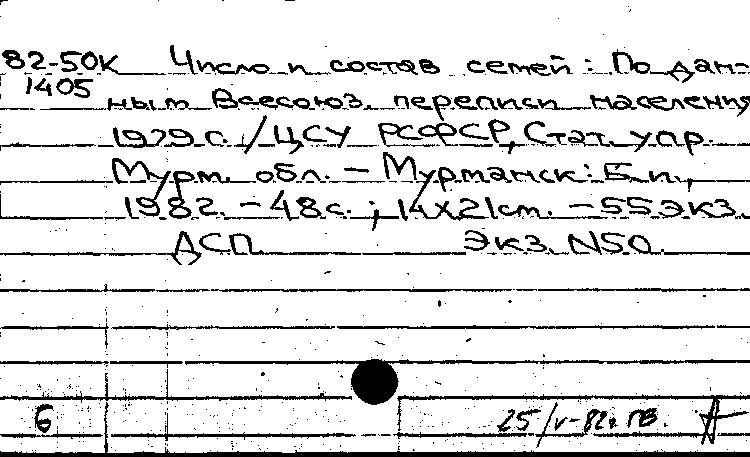 82-50К Число и состав семей: По дан-
1405 ным Всесоюз. переписи населения
1979 г. / ЦСУ РСФСР, Стат. упр.
Мурм. обл. – Мурманск: Б.и.,
1982. – 48 с.; 14х21 cm. – 55 экз.
ДСП. Экз. N50.
6 25/V-82г. ПВ.